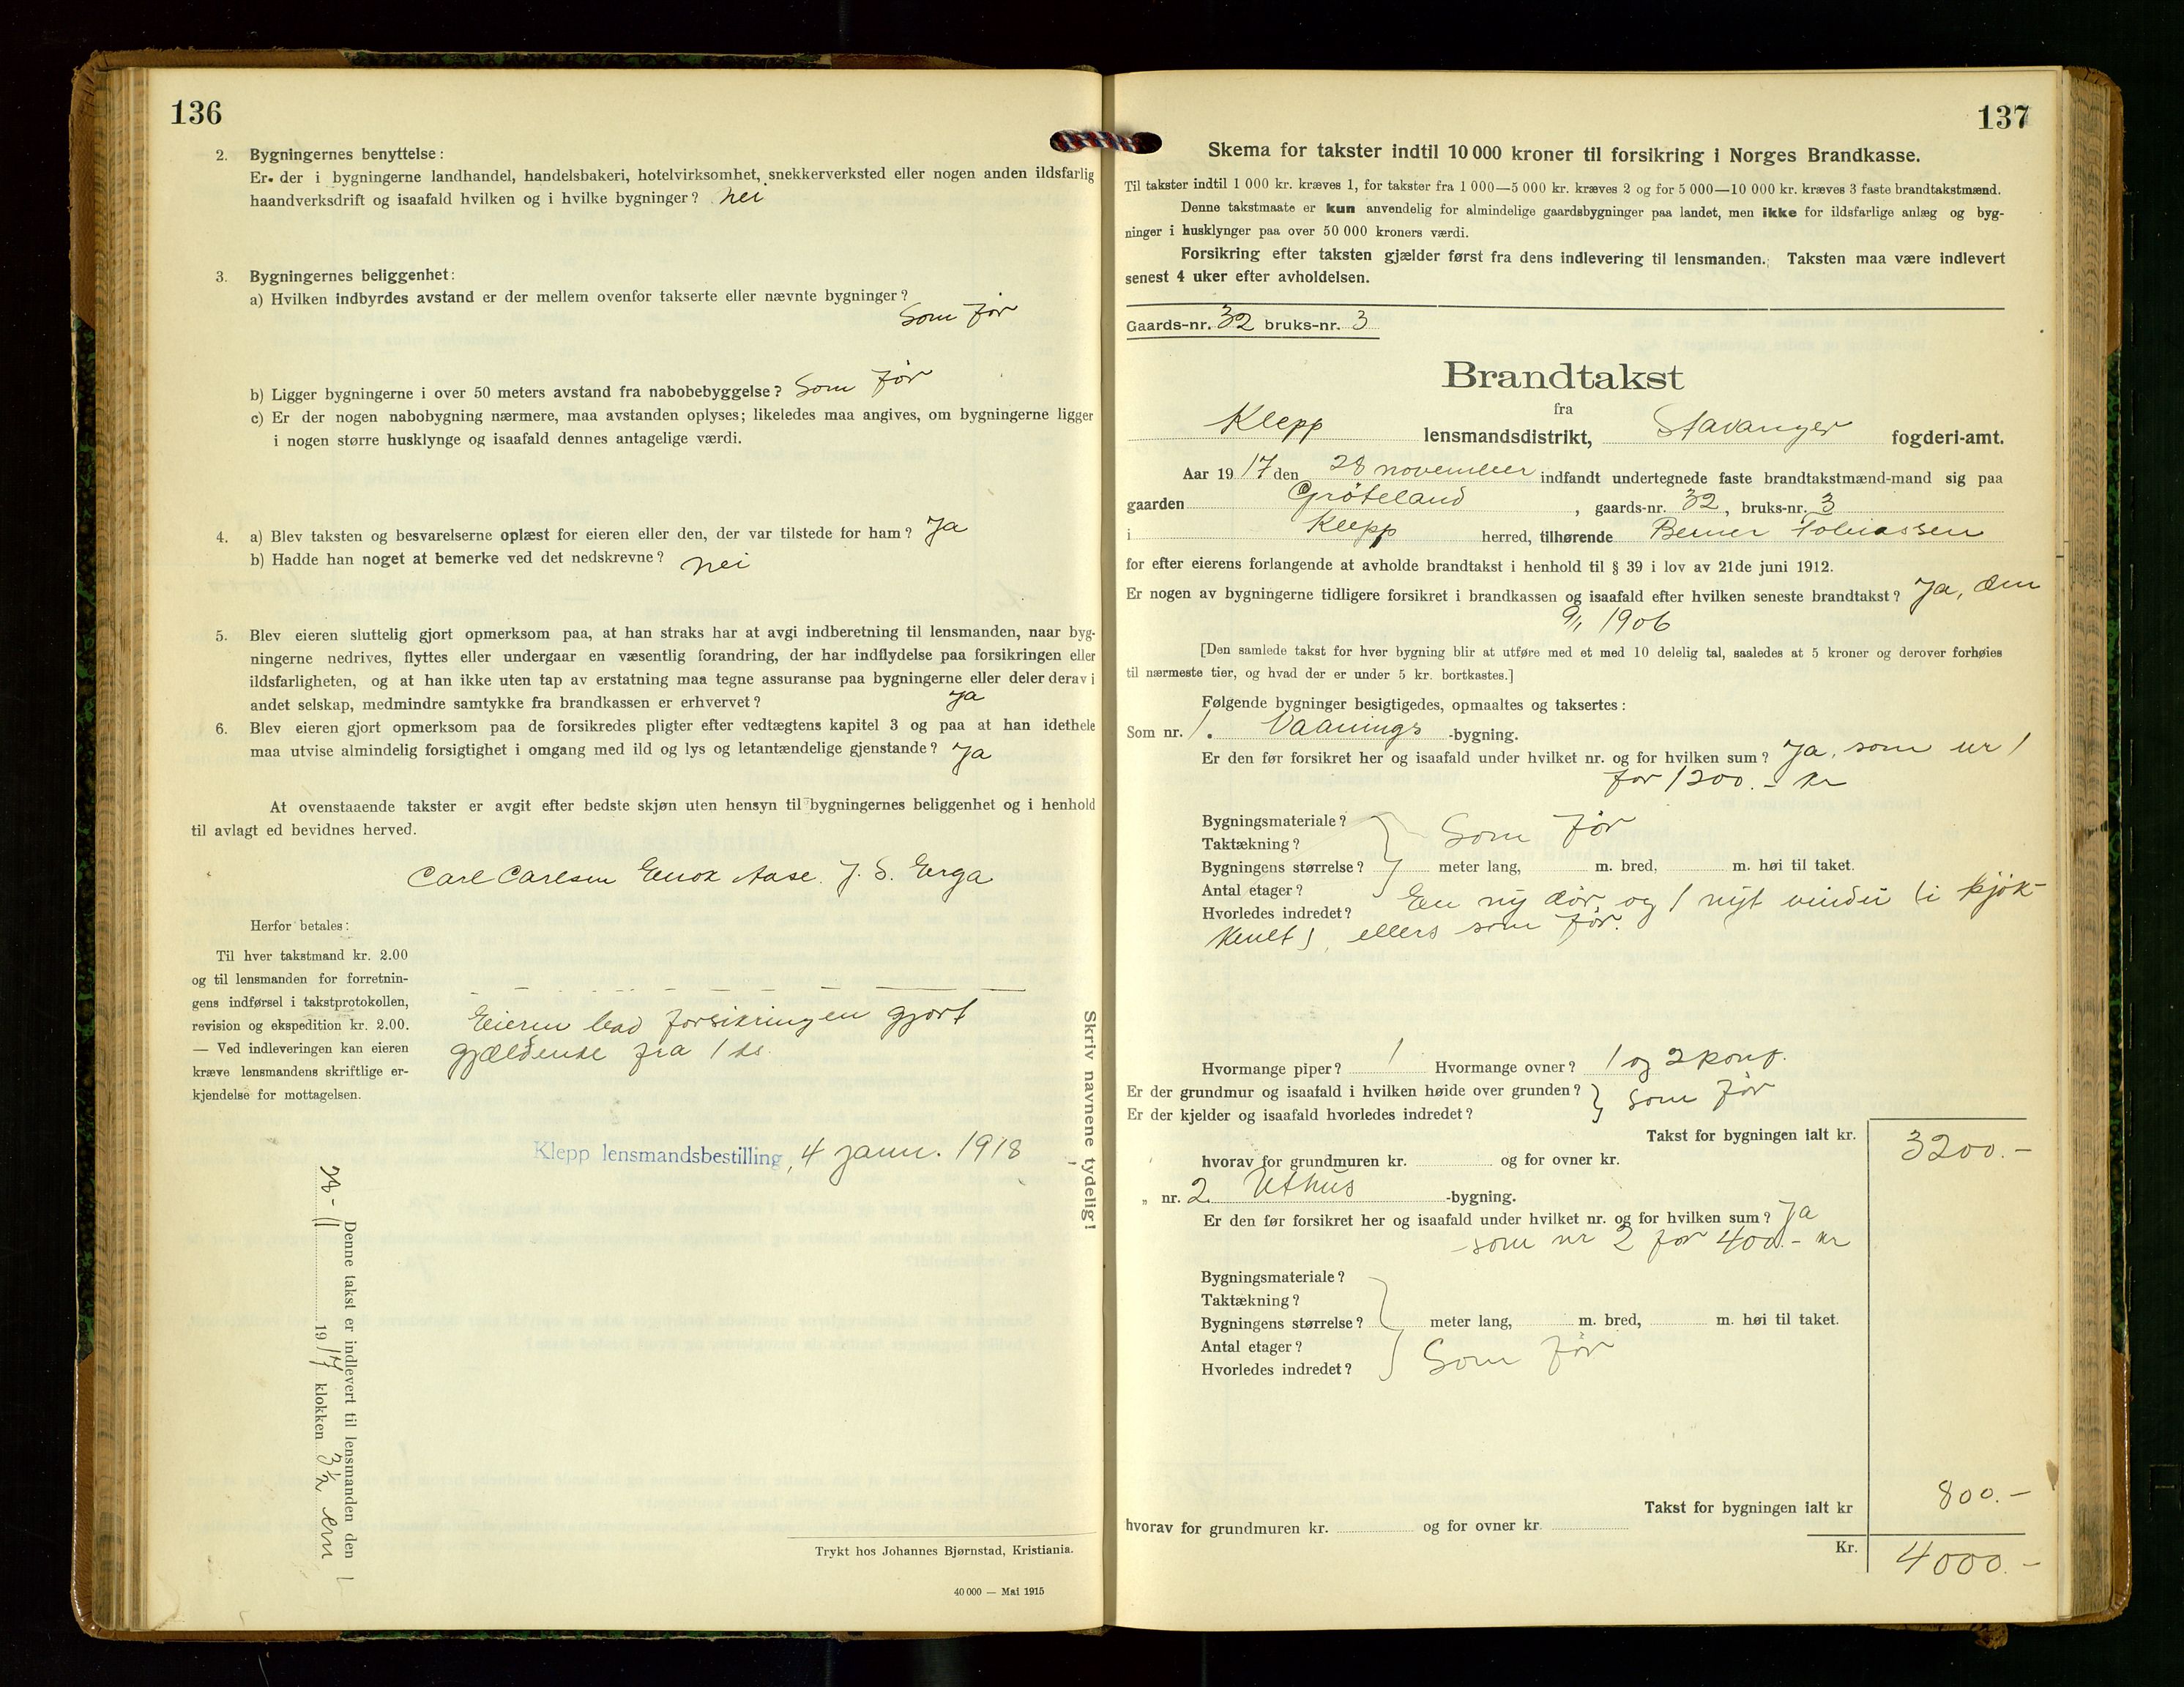 136
2. Bygningernes benyttelse:
Er der i bygningerne landhandel, handelsbakeri, hotelvirksomhet, snekkerverksted eller nogen anden ildsfarlig
haandverksdrift og isaafald hvilken og i hvilke bygninger? nei
3. Bygningernes beliggenhet:
a) Hvilken indbyrdes avstand er der mellem ovenfor takserte eller nævnte bygninger?
Som før
b) Ligger bygningerne i over 50 meters avstand fra nabobebyggelse? Som før
c) Er der nogen nabobygning nærmere, maa avstanden oplyses; likeledes maa angives, om bygningerne ligger
i nogen større husklynge og isaafald dennes antagelige værdi.
4. a) Blev taksten og besvarelserne oplæst for eieren eller den, der var tilstede for ham? Ja
b) Hadde han noget at bemerke ved det nedskrevne? nei
5. Blev eieren sluttelig gjort opmerksom paa, at han straks har at avgi indberetning til lensmanden, naar byg-
ningerne nedrives, flyttes eller undergaar en væsentlig forandring, der har indflydelse paa forsikringen eller
ildsfarligheten, og at han ikke uten tap av erstatning maa tegne assuranse paa bygningerne eller deler derav i
andet selskap, medmindre samtykke fra brandkassen er erhvervet? Ja
6. Blev eieren gjort opmerksom paa de forsikredes pligter efter vedtægtens kapitel 3 og paa at han idethele
maa utvise almindelig forsigtighet i omgang med ild og lys og letantændelige gjenstande? Ja
At ovenstaaende takster er avgit efter bedste skjøn uten hensyn til bygningernes beliggenhet og i henhold
til avlagt ed bevidnes herved.
Carl Carlsen Enok Aase. J. S. Erga
Herfor betales:
Til hver takstmand kr. 2.00
og til lensmanden for forretnin-
gens indførsel i takstprotokollen,
revision og ekspedition kr. 2.00.
— Ved indleveringen kan eieren
kræve lensmandens skriftlige er-
kjendelse for mottagelsen.
Eieren bad forsikringen gjort
gjældende fra 1 ds.
Klepp lensmandsbestilling, 4 janu. 1918
Skriv navnene tydelig!
Denne takst er indlevert til lensmanden den
19 17 klokken 3 1/2 em
Trykt hos Johannes Bjørnstad, Kristiania.
40 000 — Mai 1915
137
Skema for takster indtil 10 000 kroner til forsikring i Norges Brandkasse.
Til takster indtil 1 000 kr. kræves 1, for takster fra 1 000—5 000 kr. kræves 2 og for 5 000—10 000 kr. kræves 3 faste brandtakstmænd.
Denne takstmaate er kun anvendelig for almindelige gaardsbygninger paa landet, men ikke for ildsfarlige anlæg og byg-
ninger i husklynger paa over 50 000 kroners værdi.
Forsikring efter taksten gjælder først fra dens indlevering til lensmanden. Taksten maa være indlevert
senest 4 uker efter avholdelsen.
Gaards-nr. 32 bruks-nr. 3
Brandtakst
fra
Klepp lensmandsdistrikt, Stavanger fogderi-amt.
Aar 19 17 den 28 november indfandt undertegnede faste brandtakstmænd-mand sig paa
gaarden Grøteland, gaards-nr. 32, bruks-nr. 3
i Klepp herred, tilhørende Berner Tobiassen
for efter eierens forlangende at avholde brandtakst i henhold til § 39 i lov av 21de juni 1912.
Er nogen av bygningerne tidligere forsikret i brandkassen og isaafald efter hvilken seneste brandtakst? Ja, den
9/1 1906
[Den samlede takst for hver bygning blir at utføre med et med 10 delelig tal, saaledes at 5 kroner og derover forhøies
til nærmeste tier, og hvad der er under 5 kr. bortkastes.]
Følgende bygninger besigtigedes, opmaaltes og taksertes:
Som nr. 1. Vaanings -bygning.
Er den før forsikret her og isaafald under hvilket nr. og for hvilken sum? Ja, som nr 1
for 1200.- kr
Bygningsmateriale?
Taktækning? Som før
Bygningens størrelse? meter lang, m. bred, m. høi til taket.
Antal etager?
Hvorledes indredet? En ny dør og 1 nyt vindu (i kjøk-
kenet), ellers som før.
Hvormange piper? 1 Hvormange ovner? 1 og 2 komf.
Er der grundmur og isaafald i hvilken høide over grunden? Som før
Er der kjelder og isaafald hvorledes indredet?
Takst for bygningen ialt kr. 3200.-
hvorav for grundmuren kr. og for ovner kr.
„ nr. 2. Uthus -bygning.
Er den før forsikret her og isaafald under hvilket nr. og for hvilken sum? Ja
som nr 2 for 400.- kr
Bygningsmateriale?
Taktækning?
Bygningens størrelse? meter lang, m. bred, m. høi til taket.
Antal etager? Som før
Hvorledes indredet?
Takst for bygningen ialt kr 800.-
hvorav for grundmuren kr. og for ovner kr.
Kr. 4000.-